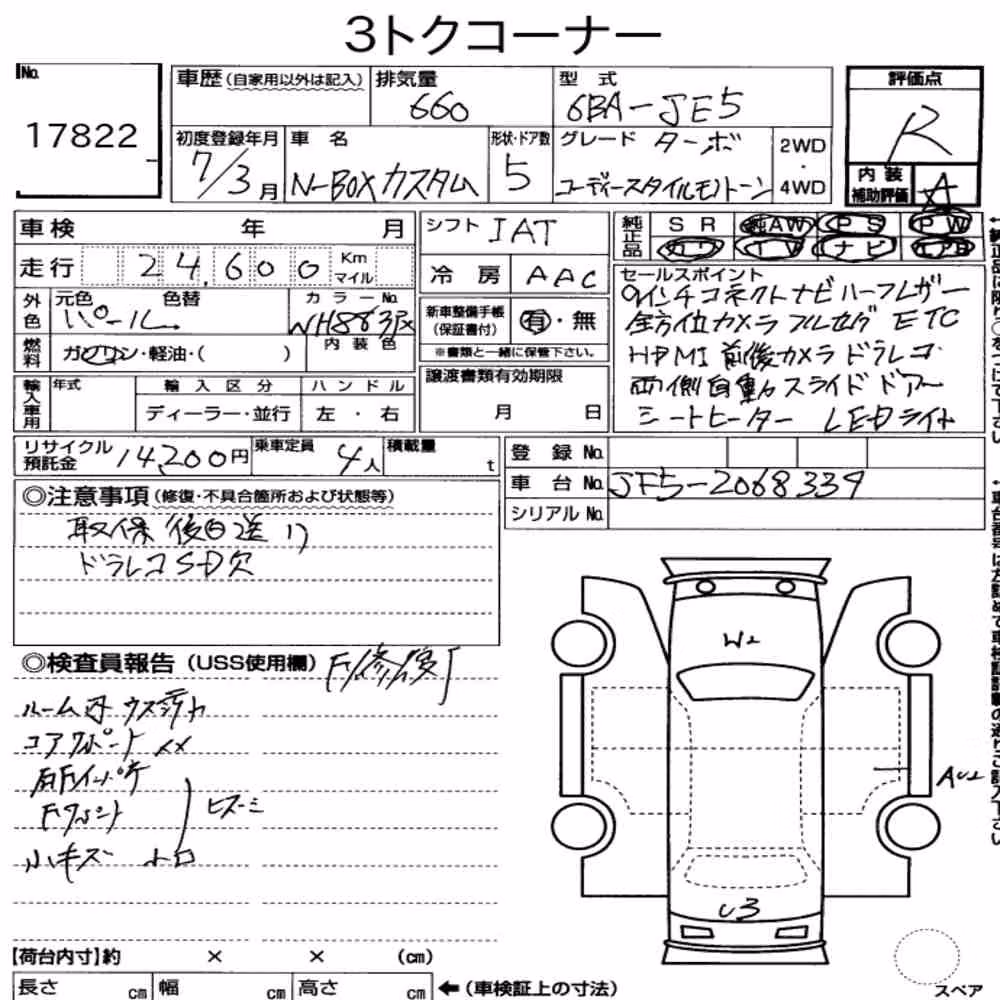 3トクコーナー
No.
17822
車歴(自家用以外は記入)
排気量
660
型式
6BA-JF5
評価点
R
初度登録年月
7/3月
車名
N-BOXカスタム
形状・ドア数
5
グレード ターボ
コーディースタイルモノトーン
2WD
・
4WD
内装
補助評価
A
車検 年 月
走行 24,600 Km
マイル
シフト IAT
冷房 AAC
純正品
SR 純AW PS PW
カワ TV ナビ エアB
セールスポイント
9インチコネクトナビ ハーフレザー
全方位カメラ フルセグ ETC
HDMI 前後カメラ ドラレコ
両側自動スライドドアー
シートヒーター LEDライト
外色
元色 色替
パール
カラーNo.
NH883P
内装色
燃料
ガソリン・軽油・( )
新車整備手帳
(保証書付)
有・無
※書類と一緒に保管下さい。
輸入車用
年式
輸入区分
ディーラー・並行
ハンドル
左・右
譲渡書類有効期限
月 日
リサイクル
預託金
14,200円
乗車定員
4人
積載量
t
登録No.
車台No. JF5-2068339
シリアルNo.
◎注意事項(修復・不具合箇所および状態等)
取保後日送り
ドラレコSD欠
◎検査員報告(USS使用欄)
F/修復
ルーム内ウスヨゴレ
コアサポート XX
右Fインパネ
Fクロス
ヒズミ
小キズ 小凹
W2
AU2
U3
【荷台内寸】約 × × (cm)
長さ cm 幅 cm 高さ cm
←(車検証上の寸法)
スペア